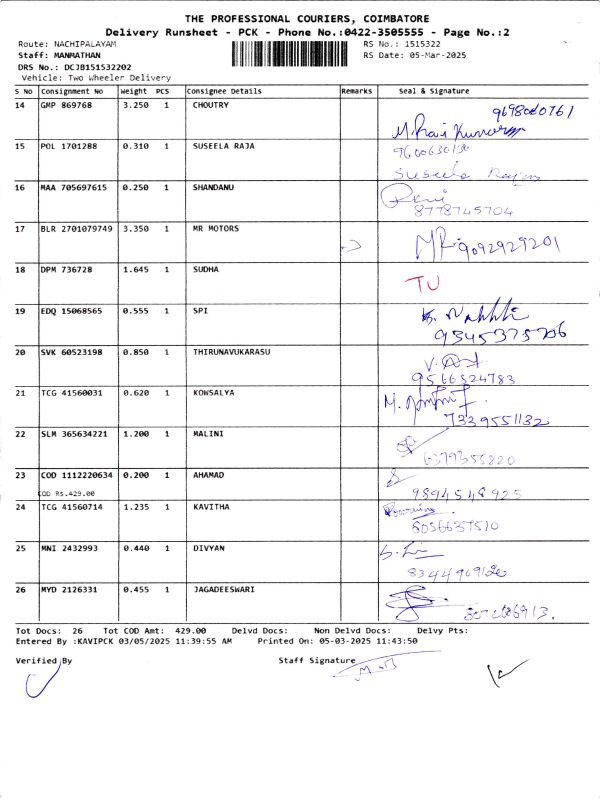 THE PROFESSIONAL COURIERS, COIMBATORE
Delivery Runsheet - PCK - Phone No.:0422-3505555 - Page No.:2
Route: NACHIPALAYAM RS No.: 1515322
Staff: MANMATHAN RS Date: 05-Mar-2025
DRS No.: DCJB151532202
Vehicle: Two Wheeler Delivery
S No Consignment No Weight PCS Consignee Details Remarks Seal & Signature
14 GMP 869768 3.250 1 CHOUTRY
15 POL 1701288 0.310 1 SUSEELA RAJA
Suseela
16 MAA 705697615 0.250 1 SHANDANU
8778745704
17 BLR 2701079749 3.350 1 MR MOTORS
9092929201
18 DPM 736728 1.645 1 SUDHA TU
19 EDQ 15068565 0.555 1 SPI
20 SVK 60523198 0.850 1 THIRUNAVUKARASU
9566324783
21 TCG 41560031 0.620 1 KOWSALYA
7339551132
22 SLM 365634221 1.200 1 MALINI
6379355820
23 COD 1112220634 0.200 1 AHAMAD
COD Rs.429.00 9894548925
24 TCG 41560714 1.235 1 KAVITHA
25 MNI 2432993 0.440 1 DIVYAN
26 MYD 2126331 0.455 1 JAGADEESWARI
Tot Docs: 26 Tot COD Amt: 429.00 Delvd Docs: Non Delvd Docs: Delvy Pts:
Entered By :KAVIPCK 03/05/2025 11:39:55 AM Printed On: 05-03-2025 11:43:50
Verified By Staff Signature